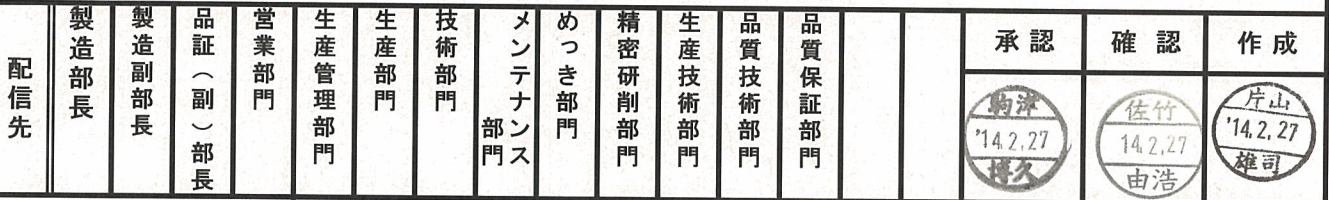 配信先
製造部長
製造副部長
品証（副）部長
営業部門
生産管理部門
生産部門
技術部門
メンテナンス
部門
めっき部門
精密研削部門
生産技術部門
品質技術部門
品質保証部門
承認
確認
作成
駒津
'14.2.27
博久
佐竹
14.2.27
由浩
片山
'14.2.27
雄司